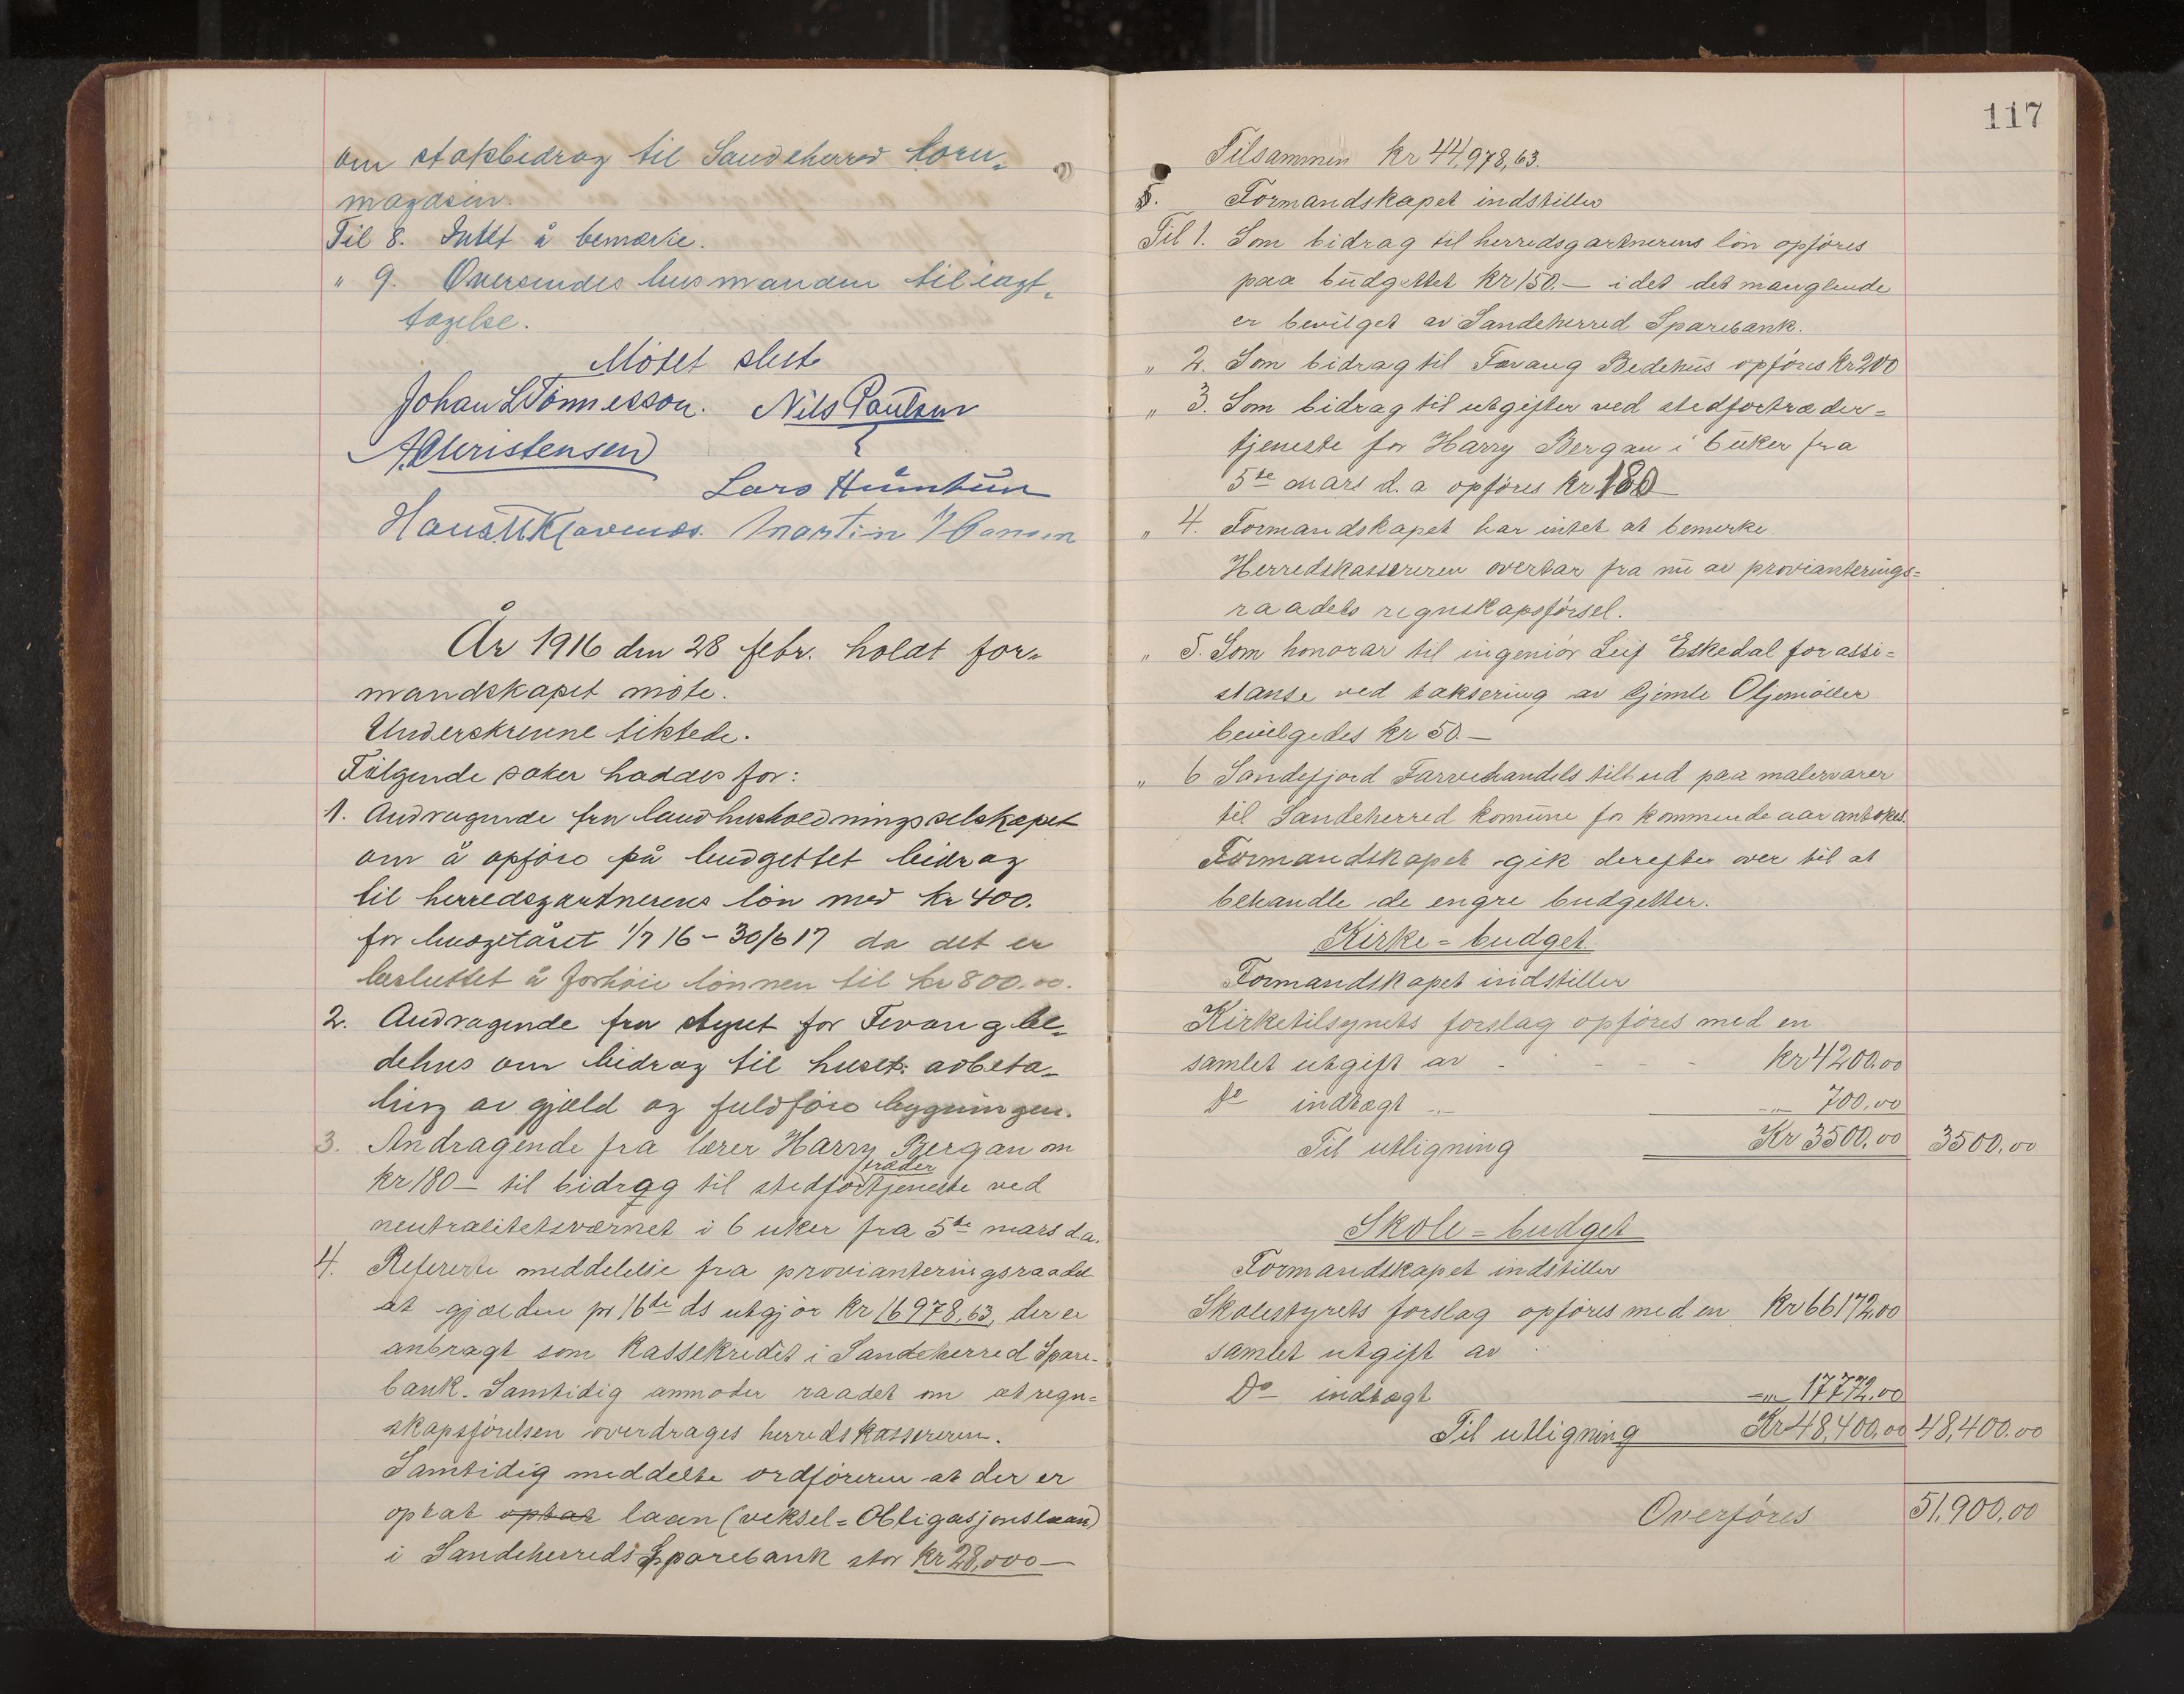 om statsbidrag til Sandeherred korn-
magasin.
Til 8. Intet å bemærke.
" 9. Oversendes husmanden til iagt-
tagelse.
Møtet slut
Johan L Tønnesson. Nils Paulsen
A Christensen
Lars Humtun
Hans Klavenes. Martin Hansen
År 1916 den 28 febr. holdt for-
mandskapet møte.
Underskrevne tiktede.
Følgende saker haddes for:
1. Andragende fra landhusholdningsselskapet
om å opføre på budgettet bidrag
til herredsgartnerens løn med kr 400.
for budgetåret 1/7 16 - 30/6 17 da det er
besluttet å forhøie lønnen til kr 800.00.
2. Andragende fra styret for Fevang be-
dehus om bidrag til huset: avbeta-
ling av gjæld og fuldføre bygningen.
3. Andragende fra lærer Harry Bergan om
træder
kr 180 - til bidrag til stedfortjeneste ved
neutralitetsværnet i 6 uker fra 5te mars d.a.
4. Refererte meddelelse fra provianteringsraadet
at gjælden pr 16de ds utgjør kr 16978,63, der er
anbragt som kassekredit i Sandeherred Spare-
bank. Samtidig anmoder raadet om at regn-
skapsførelsen overdrages herredskassereren.
Samtidig meddelte ordføreren at der er
optat optat laan (veksel = Obligasjonslaan)
i Sandeherreds Sparebank stor kr 28,000 -
117
Tilsammen kr 44,978,63.
5. Formandskapet indstiller
Til 1. Som bidrag til herredsgartnerens løn opføres
paa budgettet kr 150. - idet det manglende
er bevilget av Sandeherred Sparebank.
" 2. Som bidrag til Favang Bedehus opføres kr 200
" 3. Som bidrag til utgifter ved stedfortræder=
tjeneste for Harry Bergan i 6 uker fra
5te mars d.a opføres kr 180 -
" 4. Formandskapet har intet at bemerke
Herredskassereren overtar fra nu av provianterings=
raadets regnskapsførsel.
" 5. Som honorar til ingeniør Leif Eskedal for assi=
stanse ved taksering av Gimle Oljemøller
bevilgedes kr 50. -
" 6 Sandefjord Farvehandels tilbud paa malervarer
til Sandeherred komune for kommende aar antokes.
Formandskapet gik derefter over til at
behandle de engre budgetter.
Kirke = budget
Formandskapet indstiller
Kirketilsynets forslag opføres med en
samlet utgift av - - - - kr 4200.00
Do indtægt - - " - 700.00
Til utligning Kr 3500.00 3500.00
Skole = budget
Formandskapet indstiller
Skolestyrets forslag opføres med en kr 66172.00
samlet utgift av
Do indtægt - " - 17772.00
Til utligning Kr 48,400.00 48,400.00
Overføres 51,900.00